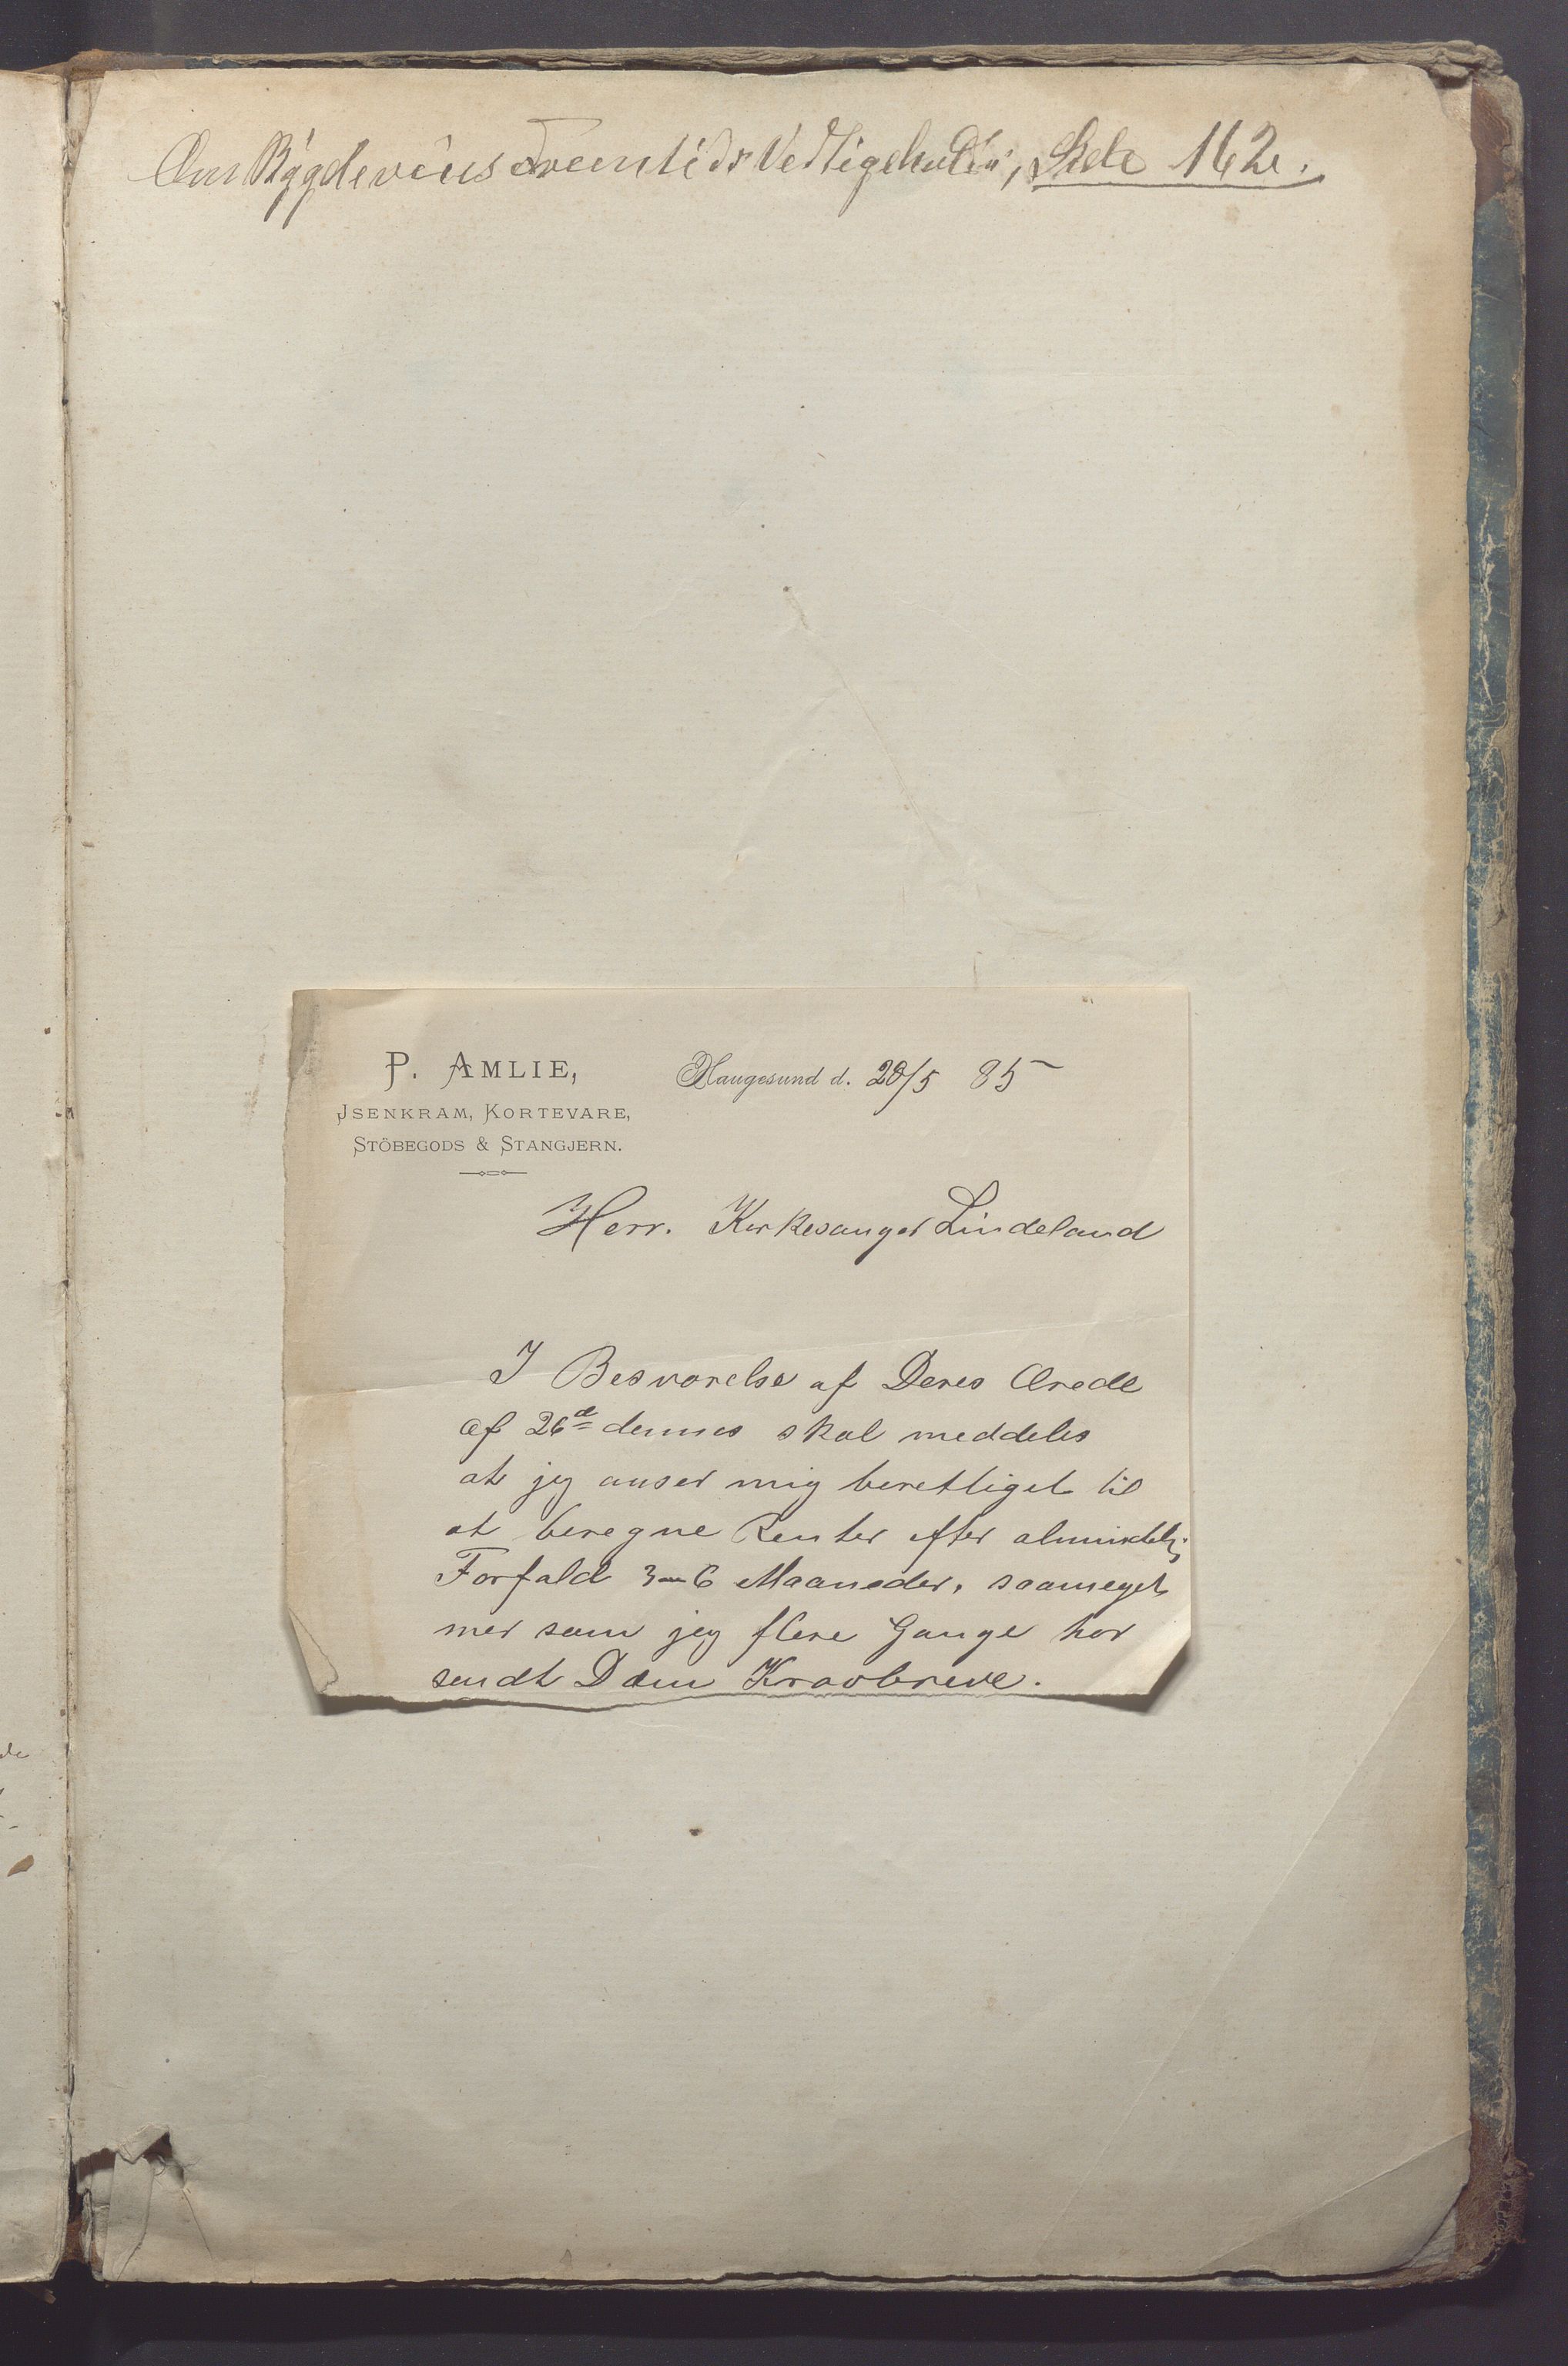 Om Bygdeveiens Fremtids Vedligehold, Side 162.
P. AMLIE,
ISENKRAM, KORTEVARE,
STÖBEGODS & STANGJERN.
Haugesund d. 28/5 85
Herr. Kirkesanger Lindeland
I Besvarelse af Deres Ærede
af 26d dennes skal meddeles
at jeg anser mig berettiget til
at beregne Renter efter almindelig
Forfald 3-6 Maaneder, saameget
mer som jeg flere Gange har
sendt Dem Kravbreve.
de